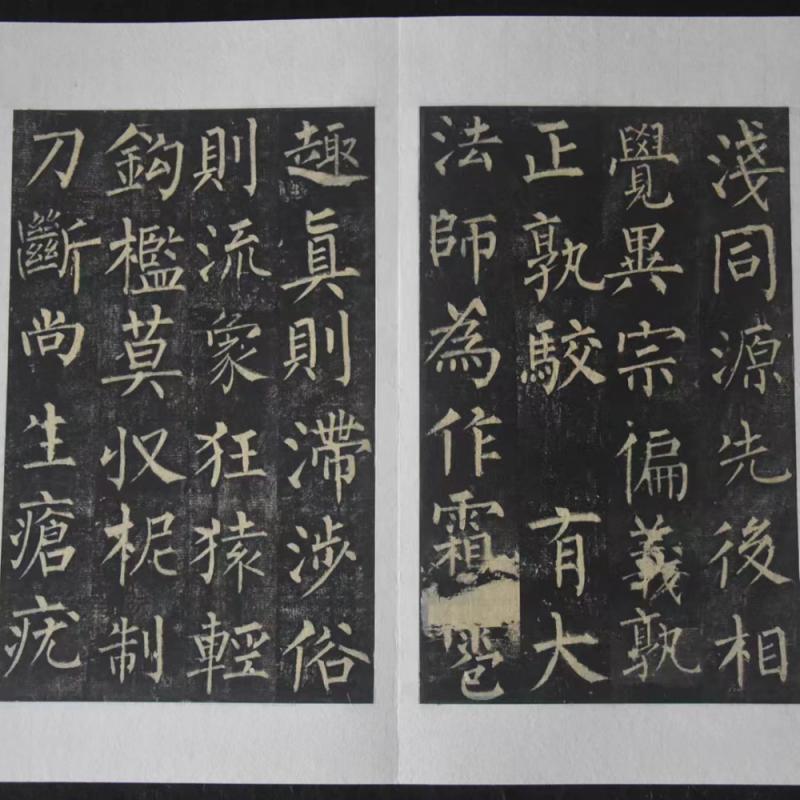 淺同源先後相
覺異宗偏義孰
正孰駮有大
法師為作霜雹
趣真則滯涉俗
則流象狂猿輕
鈎檻莫収柅制
刀斷尚生瘡疣